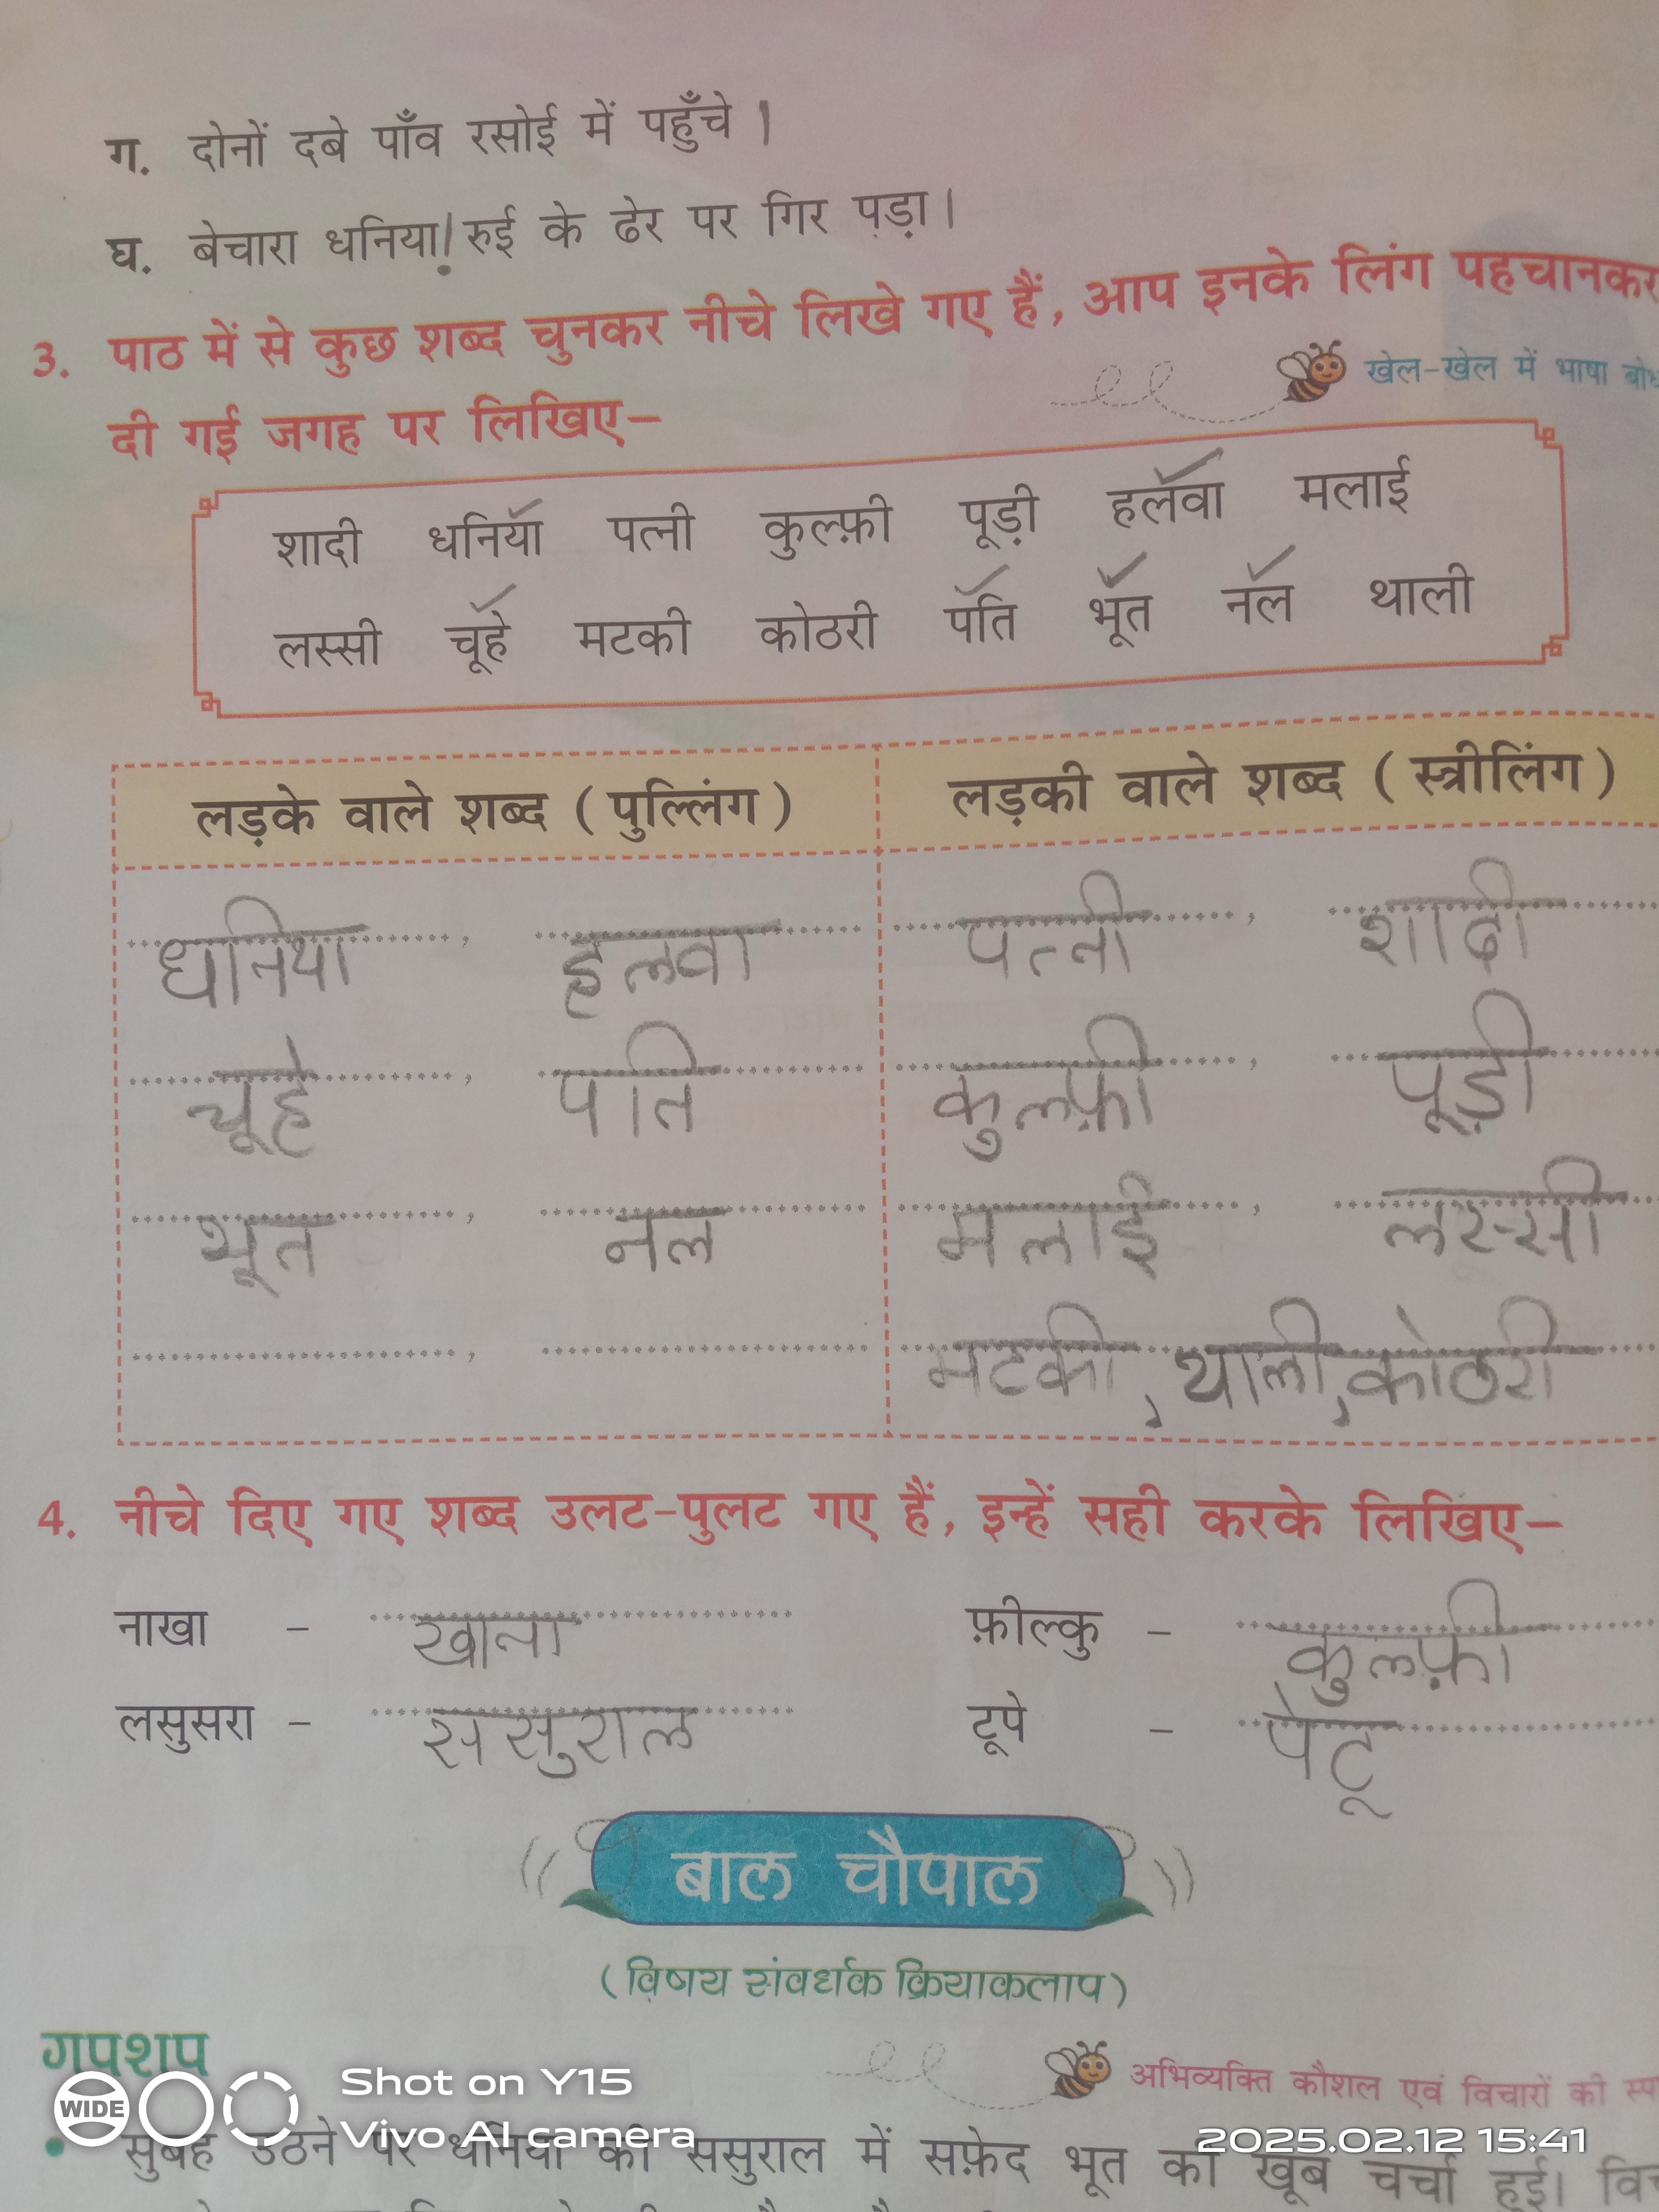 ग. दोनों दबे पाँव रसोई में पहुँचे ।
घ. बेचारा धनिया! रुई के ढेर पर गिर पड़ा।
3. पाठ में से कुछ शब्द चुनकर नीचे लिखे गए हैं, आप इनके लिंग पहचानकर
खेल-खेल में भाषा बोध
दी गई जगह पर लिखिए–
शादी धनिया पत्नी कुल्फ़ी पूड़ी हलवा मलाई
लस्सी चूहे मटकी कोठरी पति भूत नल थाली
लड़के वाले शब्द (पुल्लिंग) लड़की वाले शब्द (स्त्रीलिंग)
धनिया, हलवा पत्नी, शादी
चूहे, पति कुल्फ़ी, पूड़ी
भूत, नल मलाई, लस्सी
मटकी, थाली, कोठरी
4. नीचे दिए गए शब्द उलट-पुलट गए हैं, इन्हें सही करके लिखिए–
नाखा – खाना फ़ील्कु – कुल्फ़ी
लसुसरा – ससुराल टूपे – पेटू
बाल चौपाल
(विषय संवर्धक क्रियाकलाप)
गपशप
अभिव्यक्ति कौशल एवं विचारों की
WIDE Shot on Y15
Vivo AI camera
2025.02.12 15:41
• सुबह उठने पर धनिया की ससुराल में सफ़ेद भूत की खूब चर्चा हुई।